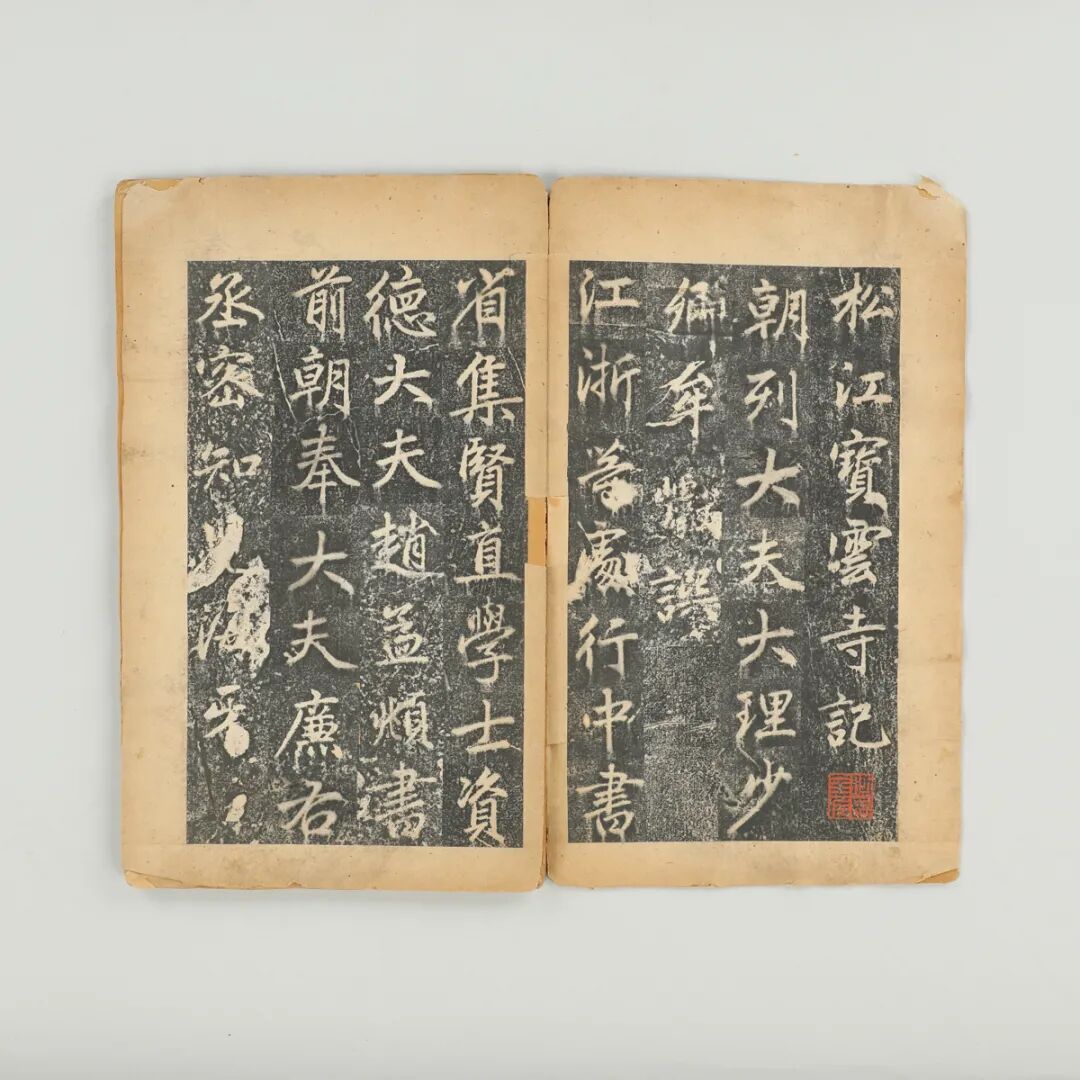 松江寶雲寺記
朝列大夫大理少
卿牟巘譔
江浙等處行中書
省集賢直學士資
德大夫趙孟頫書
前朝奉大夫廉右
丞密知